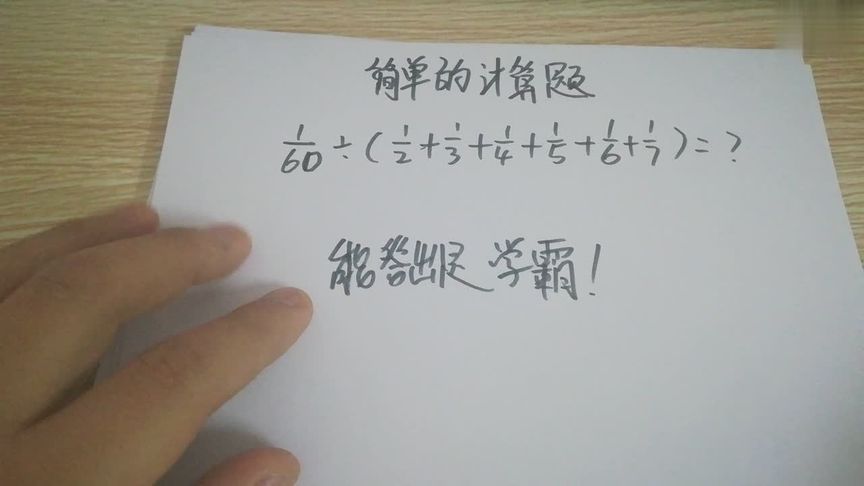 简单的计算题
1/60÷(1/2+1/3+1/4+1/5+1/6+1/7)=?
能答出是学霸!